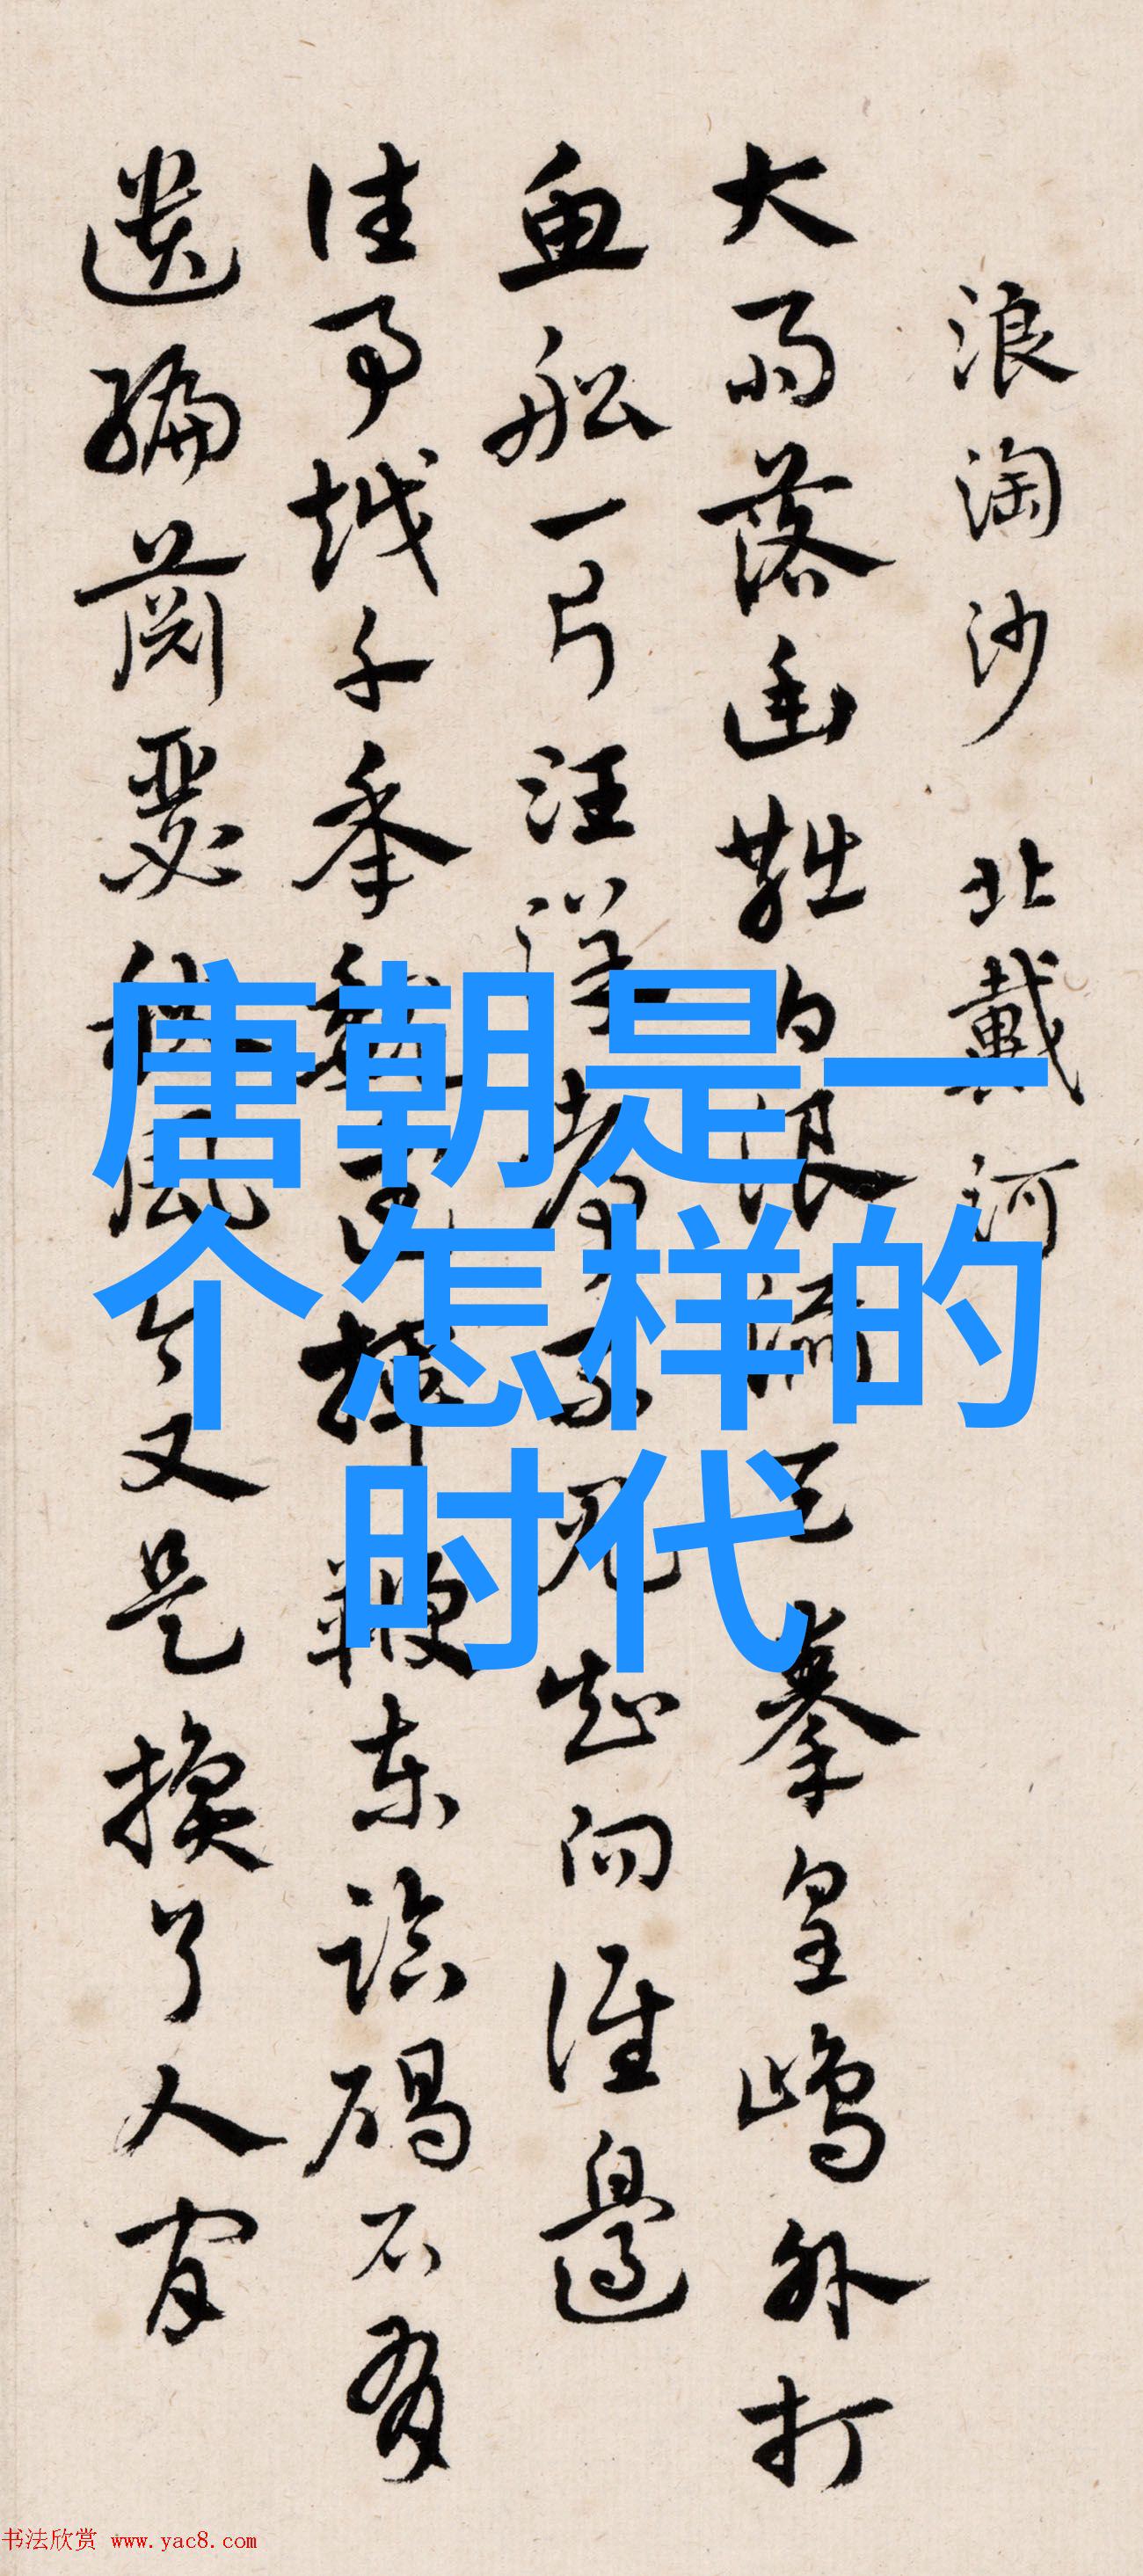 浪淘沙 北戴河
大雨落幽燕白浪滔天秦皇島外打
魚船一片汪洋都不見知向誰邊
往事越千年魏武揮鞭東臨碣石有
遺編蕭瑟秋風今又是換了人间
唐朝是一
个怎样的
时代
书法欣赏 www.yac8.com